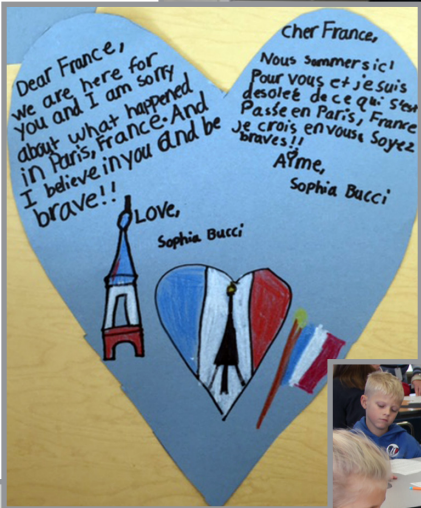 Dear France,
we are here for
you and I am sorry
about what happened
in Paris, France. And
I believe in you and be
brave!!
Love,
Sophia Bucci
Cher France,
Nous sommers ici
Pour vous et je suis
desoleé de ce qui s'est
Passe en Paris, France
je crois en vous. Soyez
braves!!
Aime,
Sophia Bucci